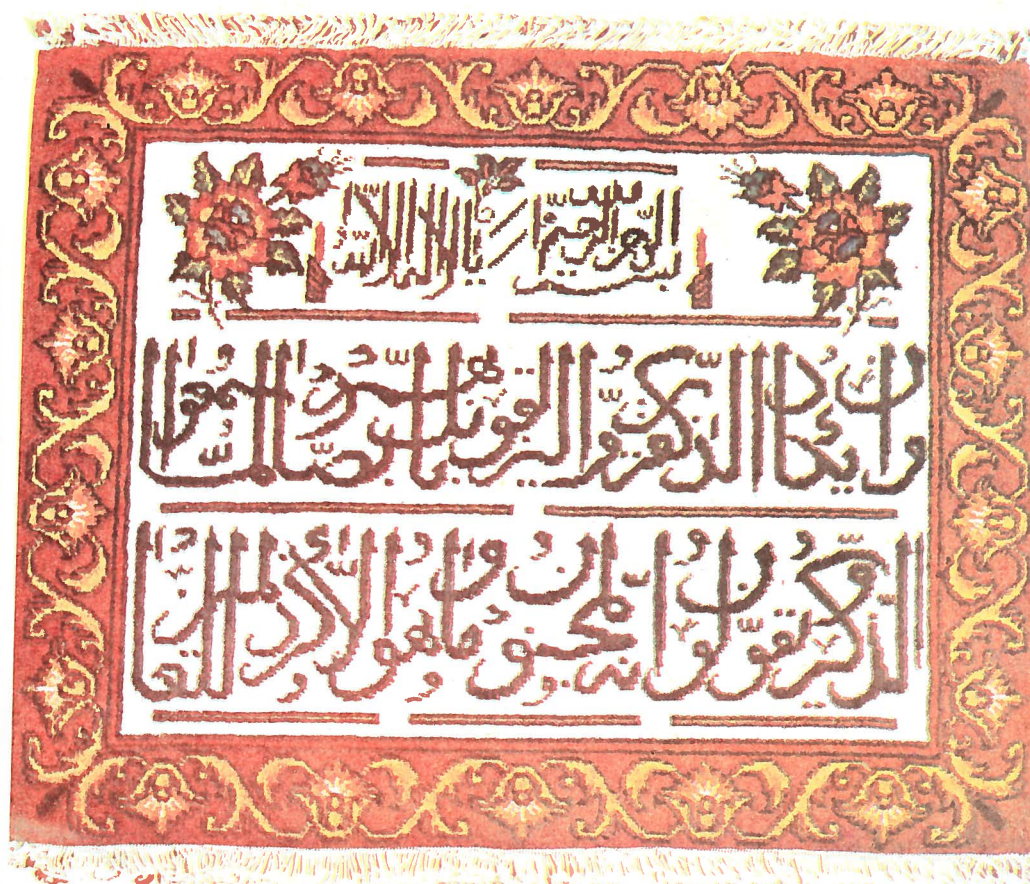 بسم الله الرحمن الرحیم
وان یکاد الذین کفروا لیزلقونک بابصارهم لما سمعوا
الذکر ویقولون انه لمجنون وما هو الا ذکر للعالمین